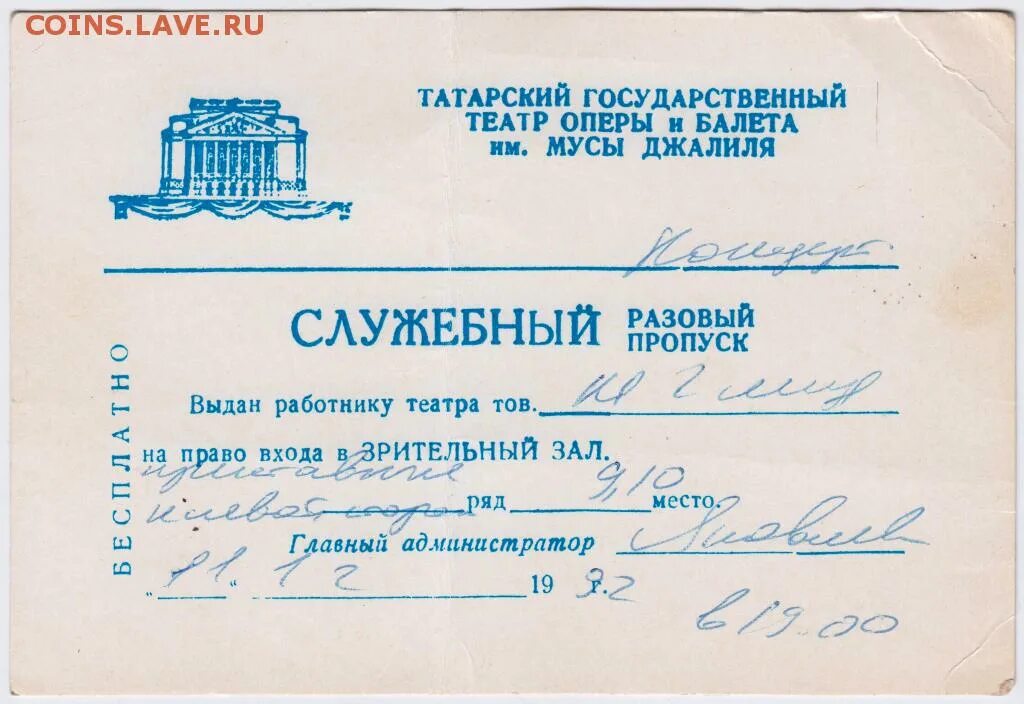 COINS.LAVE.RU
ТАТАРСКИЙ ГОСУДАРСТВЕННЫЙ
ТЕАТР ОПЕРЫ и БАЛЕТА
им. МУСЫ ДЖАЛИЛЯ
Концерт
СЛУЖЕБНЫЙ РАЗОВЫЙ ПРОПУСК
БЕСПЛАТНО
Выдан работнику театра тов. на 2 лица
на право входа в ЗРИТЕЛЬНЫЙ ЗАЛ.
приставные
ряд 9,10 место.
Главный администратор Яковлев
„11“ 12 1992 г.
в 19.00